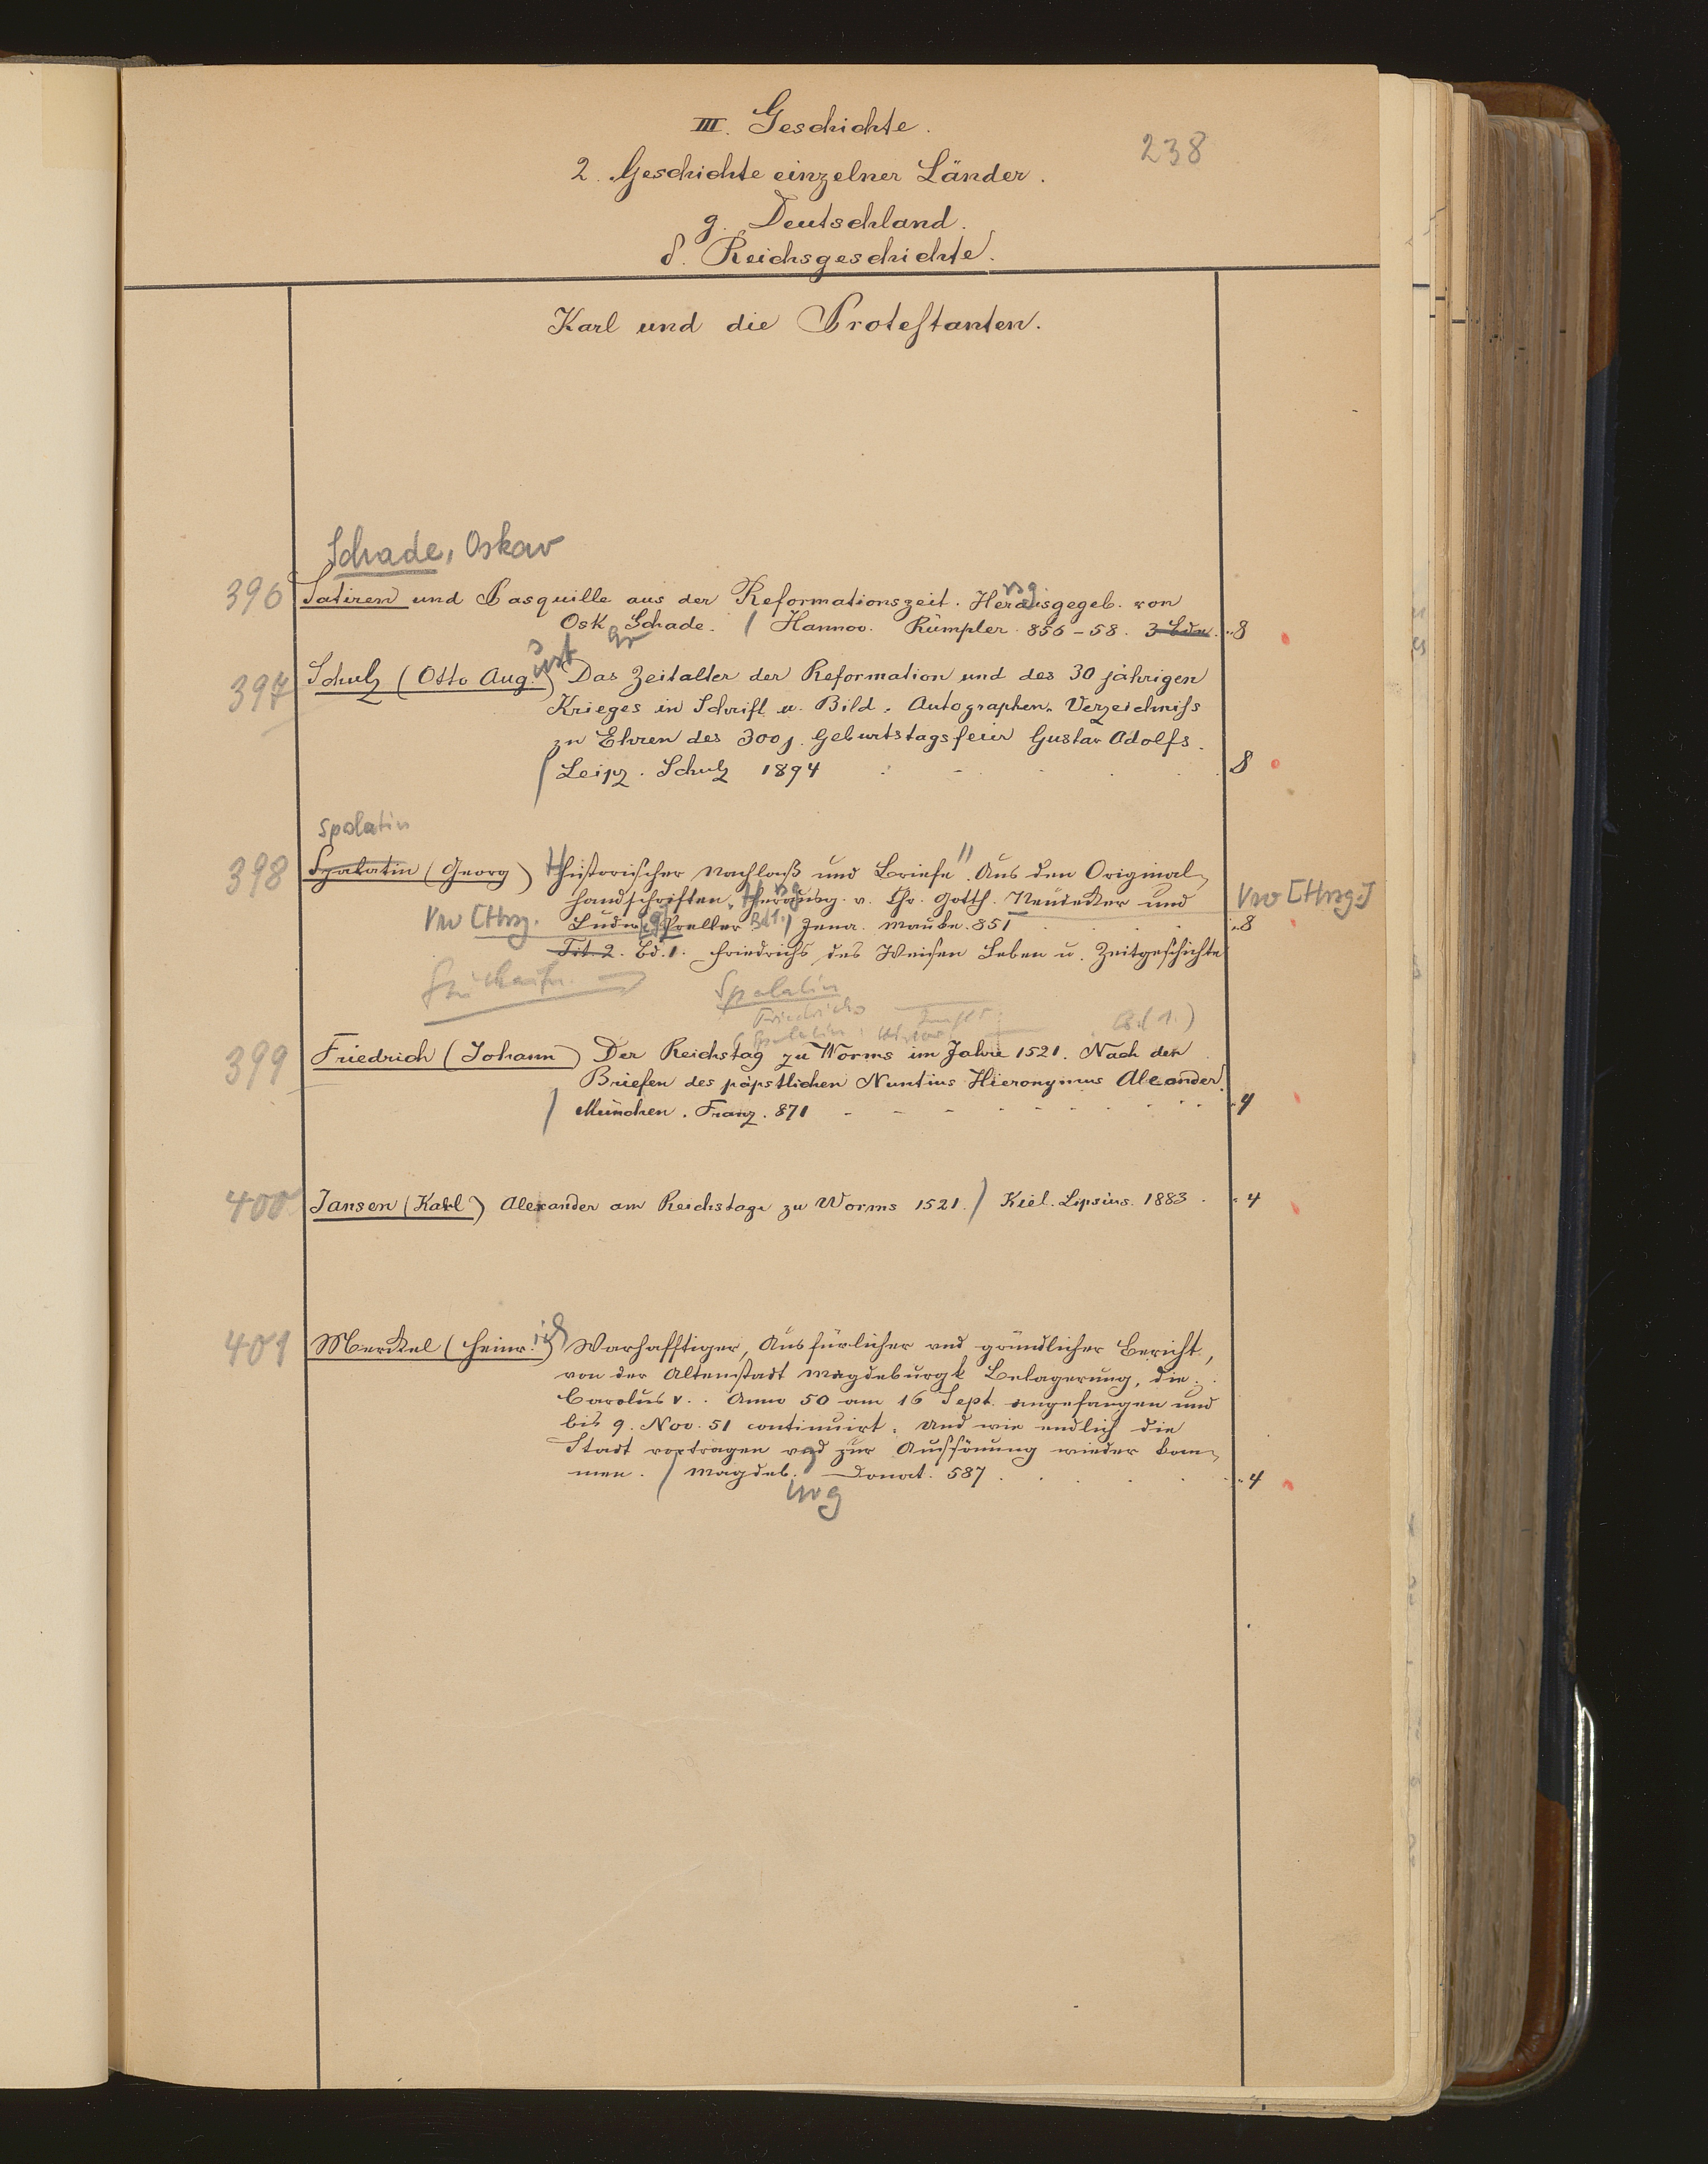 238
III. Geschichte.
2. Geschichte einzelner Länder.
g. Deutschland.
δ. Reichsgeschichte.
Karl und die Protestanten.
Schade, Oskar
396 Satiren und Pasquille aus der Reformationszeit. Herausgegeb. von
Osk. Schade. / Hannov. Rümpler. 856-58. 3 Bde. 8
397 Schulz (Otto August) Das Zeitalter der Reformation und des 30 jährigen
Krieges in Schrift u. Bild. Autographen-Verzeichniss
zu Ehren des 300j. Geburtstagsfeier Gustav Adolfs.
/ Leipz. Schulz 1894 8
Spalatin
398 Spalatin (Georg) Historischer Nachlaß und Briefe". Aus den Original-
handschriften. Herausg. v. Chr. Gotth. Neudecker und
Vw [Hrsg.]
Vw [Hrsg. Ludw[ig] Preller Bd 1. / Jena. Mauke. 851 8
Tit. 2. Bd. 1. Friedrichs des Weisen Leben u. Zeitgeschichte
Spalatin
Friedrichs
(Bd 1.)
399 Friedrich (Johann) Der Reichstag zu Worms im Jahre 1521. Nach den
Briefen des päpstlichen Nuntius Hieronymus Aleander.
/ München. Franz. 871 4
400 Jansen (Karl) Alexander am Reichstage zu Worms 1521. / Kiel. Lipsius. 1883. 4
401 Merckel (Heinrich) Warhafftiger, Ausfürlicher und gründlicher Bericht,
von der Altenstadt Magdeburgk Belagerung, die
Carolus V. . Anno 50 am 16 Sept. angefangen und
bis 9. Nov. 51 continuirt. Und wie endlich die
Stadt vortragen und zur Aussönung wieder kom-
men. / Magdeb. Donat. 587. 4
urg